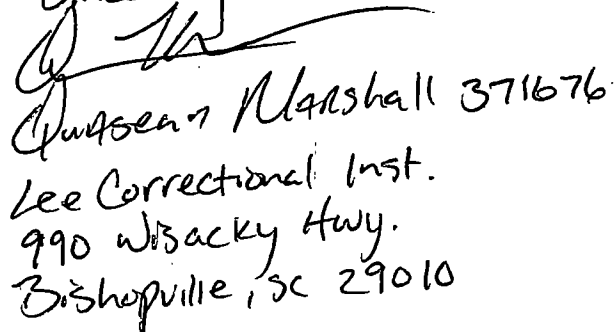 Qwasean Marshall 371676
Lee Correctional Inst.
990 Wisacky Hwy.
Bishopville, SC 29010